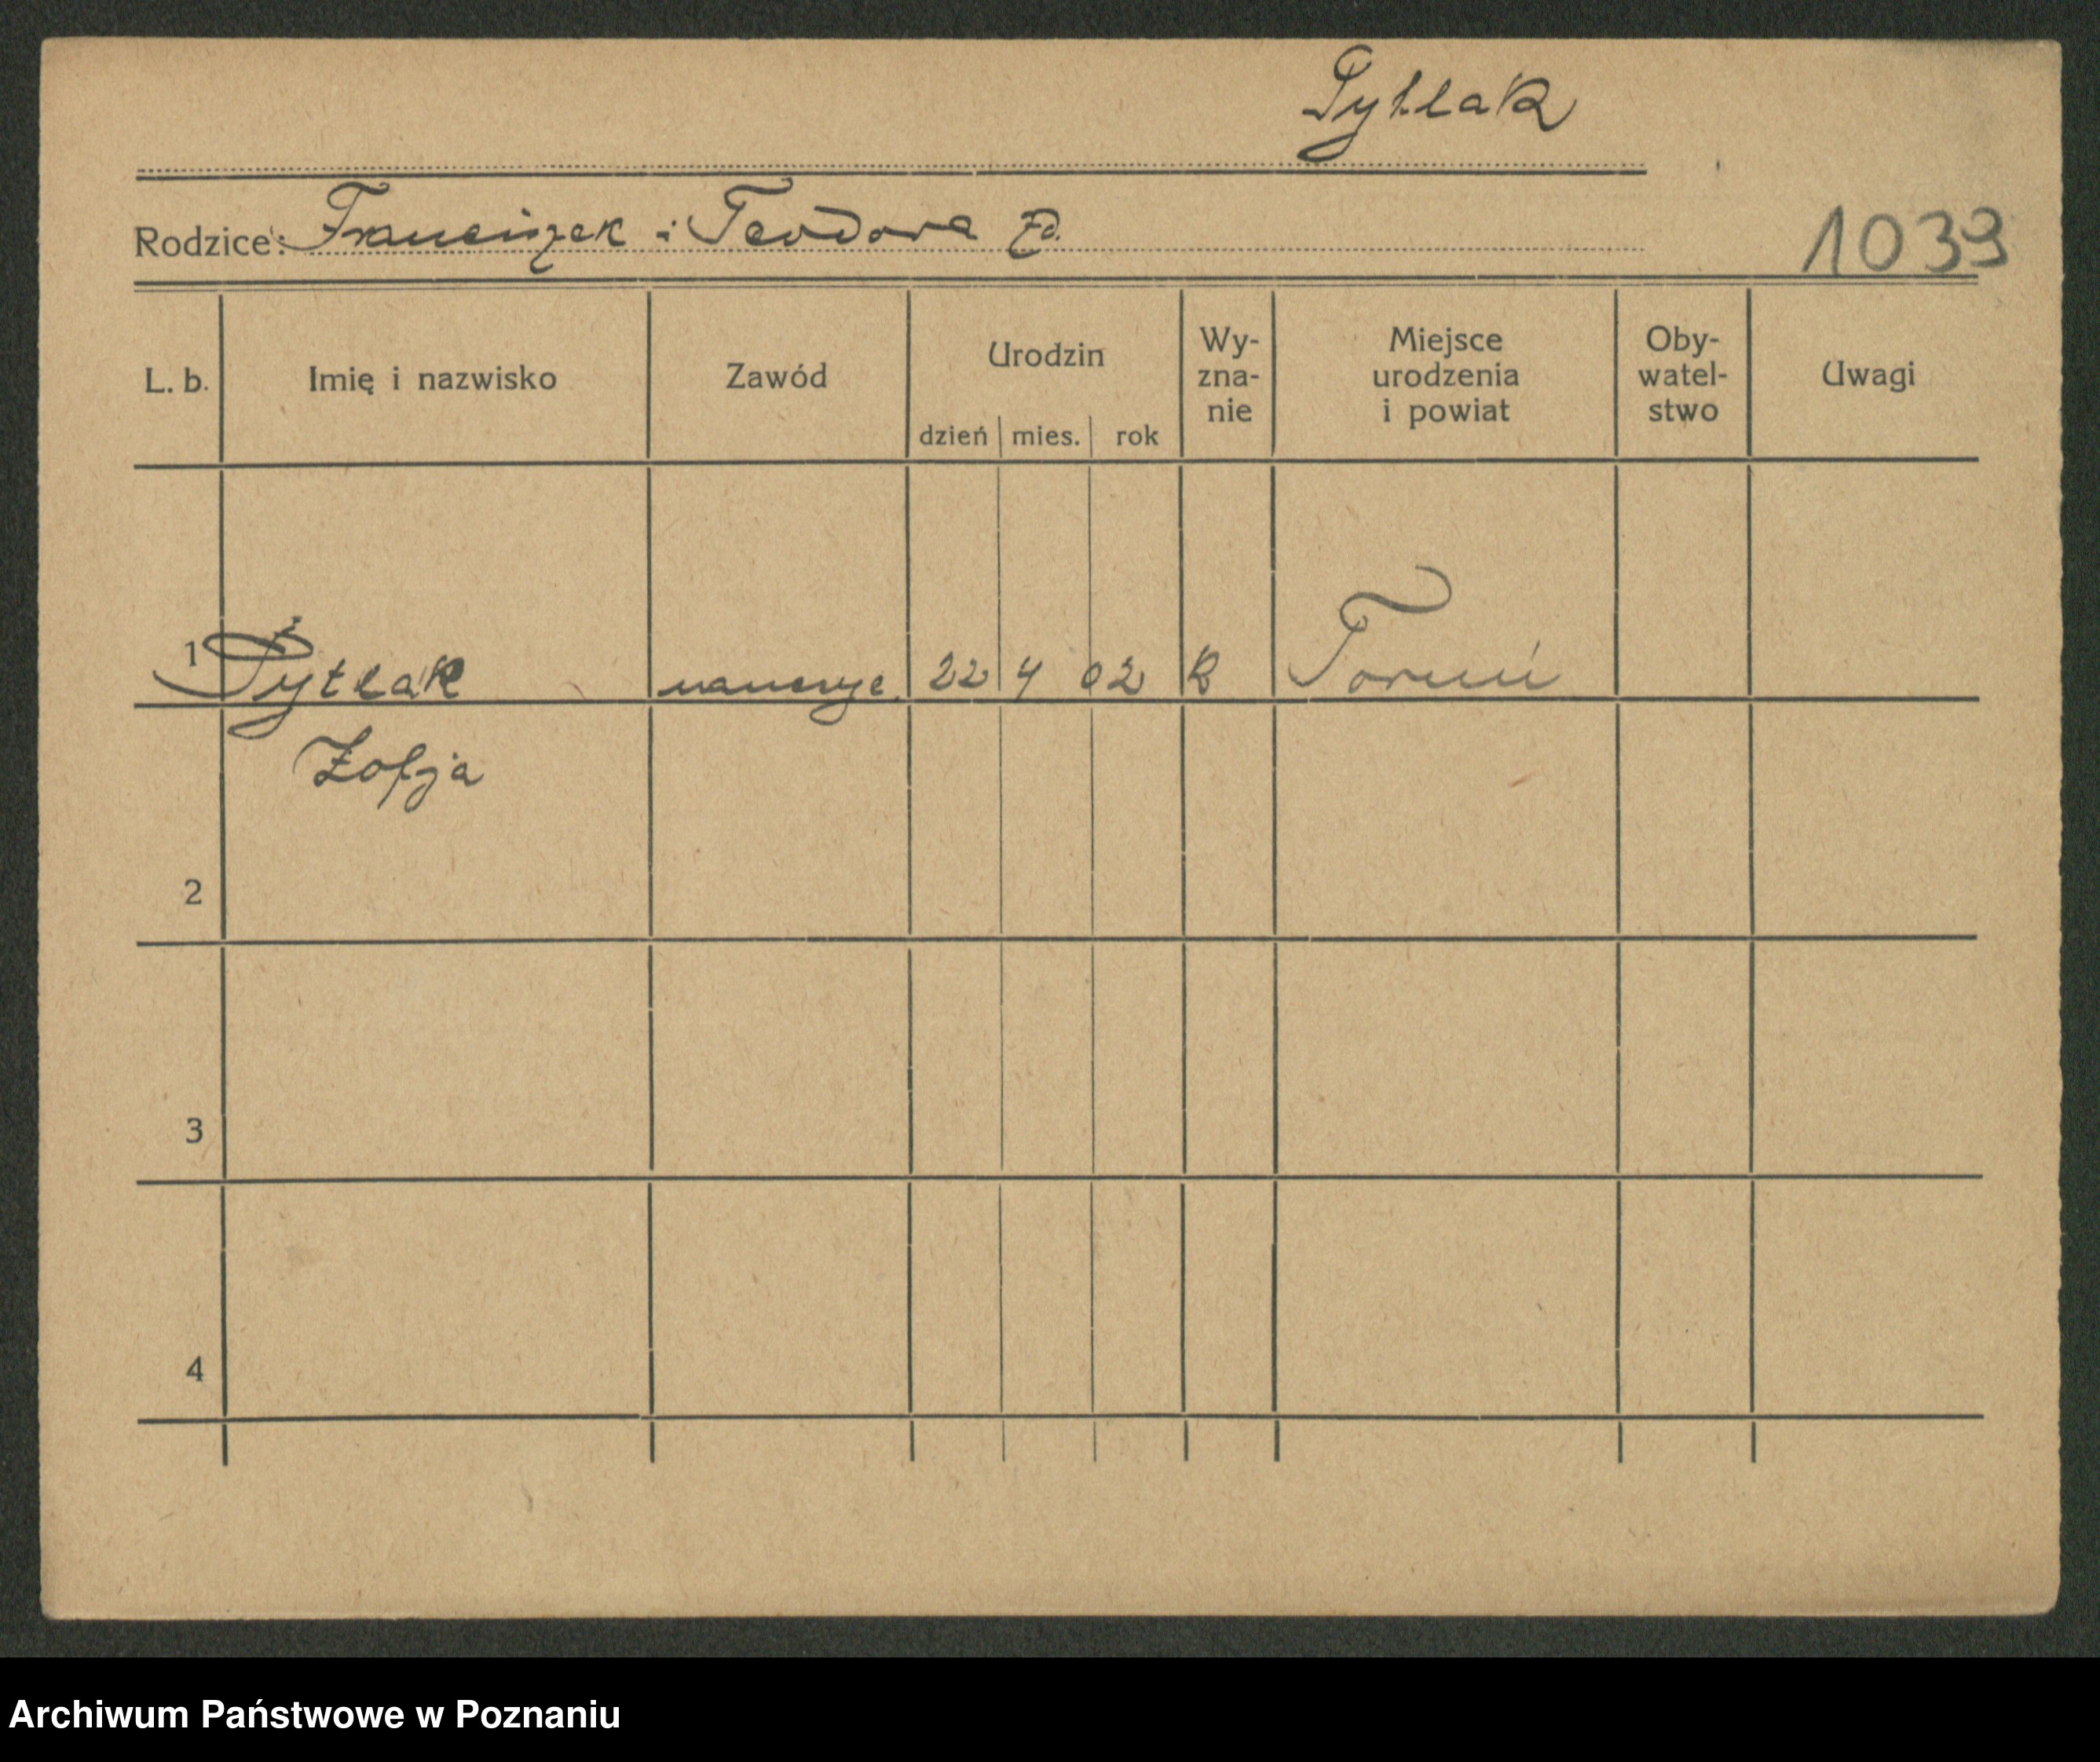 Pytlak
Rodzice: Franciszek i Teodora
1039
L. b. Imię i nazwisko Zawód Urodzin dzień mies. rok Wy-zna-nie Miejsce urodzenia i powiat Oby-watel-stwo Uwagi
1 Pytlak 22 4 02 K Toruń
Zofja
2
3
4
Archiwum Państwowe w Poznaniu